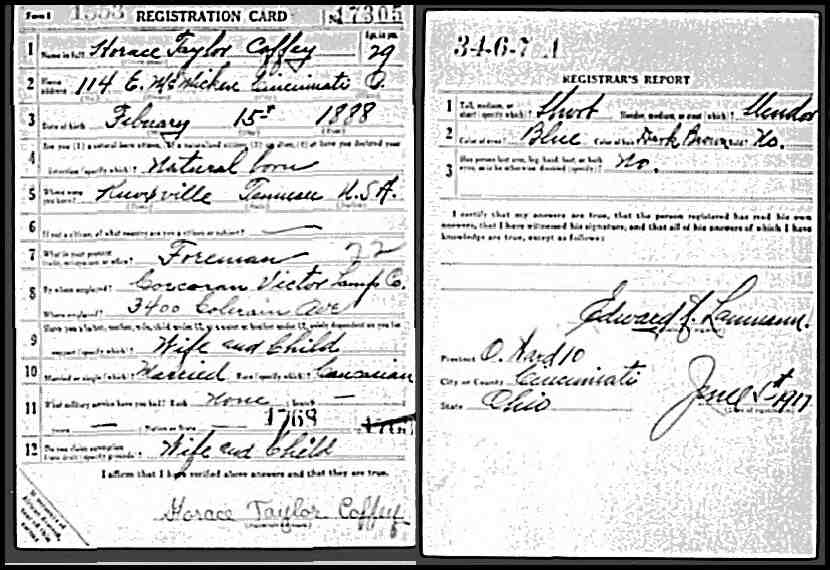 Form 1 1553 REGISTRATION CARD No 17305
1 Name in full Horace Taylor Coffey Age, in yrs. 29
2 Home address 114 E. McMicken Cincinnati O.
3 Date of birth Febuary 15th 1888
4 Are you (1) a natural-born citizen, (2) a naturalized citizen, (3) an alien, (4) or have you declared your
intention (specify which)? Natural born
5 Where were you born? Knoxville Tennessee U.S.A.
6 If not a citizen, of what country are you a citizen or subject?
7 What is your present trade, occupation, or office? Foreman 22
8 By whom employed? Corcoran Victor Lamp Co.
Where employed? 3400 Colerain Ave
9 Have you a father, mother, wife, child under 12, or a sister or brother under 12, solely dependent on you for
support (specify which)? Wife and Child
10 Married or single (which)? Married Race (specify which)? Causasian
11 What military service have you had? Rank None branch —
years — Nation or State — 1768
12 Do you claim exemption from draft (specify grounds)? Wife and Child
I affirm that I have verified above answers and that they are true.
Horace Taylor Coffey
34-6-7 A
REGISTRAR'S REPORT
1 Tall, medium, or short (specify which)? Short Slender, medium, or stout (which)? Slender
2 Color of eyes? Blue Color of hair Dark Brown Bald? No.
3 Has person lost arm, leg, hand, foot, or both eyes, or is he otherwise disabled (specify)? No.
I certify that my answers are true, that the person registered has read his own
answers, that I have witnessed his signature, and that all of his answers of which I have
knowledge are true, except as follows:
Edward J. Laumann.
Precinct O. Ward 10
City or County Cincinnati
State Ohio June 5th 1917
(Date of registration)